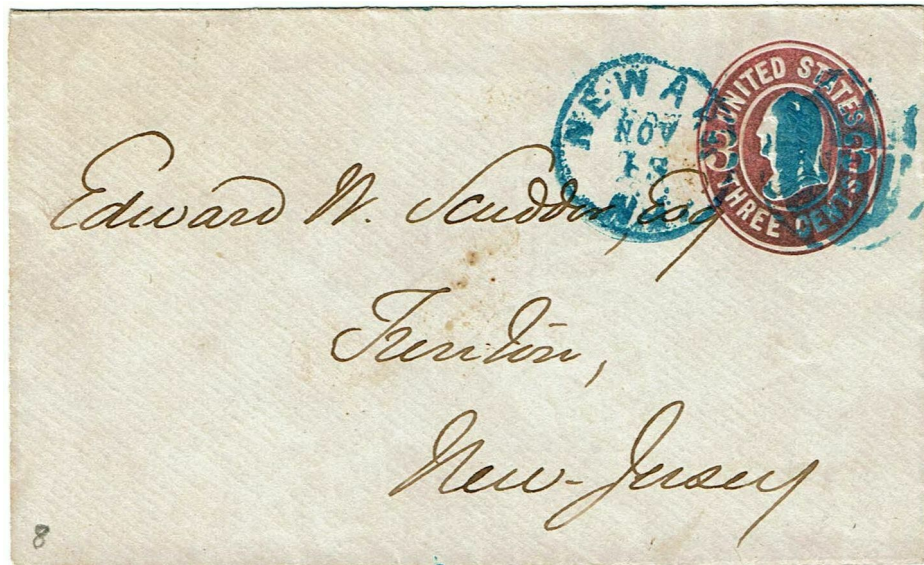 NEWA
NOV
UNITED STATES
3 3
THREE CENTS
Edward W. Scudder, Esq
Trenton,
New-Jersey
8